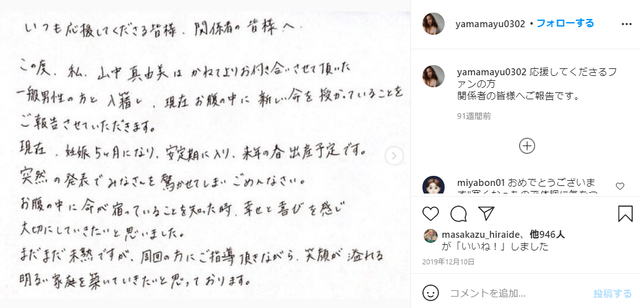 いつも応援してくださる皆様、関係者の皆様へ
この度、私、山中真由美はかねてよりお付き合いさせて頂いた
一般男性の方と入籍し、現在お腹の中に新しい命を授かっていることを
ご報告させていただきます。
現在、妊娠5ヶ月になり、安定期に入り、来年の春出産予定です。
突然の発表でみなさんを驚かせてしまいごめんなさい。
お腹の中に命が宿っていることを知った時、幸せと喜びを感じ
大切にしていきたいと思いました。
まだまだ未熟ですが、周囲の方にご指導頂きながら、笑顔が溢れる
明るい家庭を築いていきたいと思っております。
yamamayu0302 • フォローする
yamamayu0302 応援してくださるフ
ァンの方
関係者の皆様へご報告です。
91週間前
miyabon01 おめでとうございま
masakazu_hiraide、他946人
が「いいね！」しました
2019年12月10日
コメントを追加...
投稿する